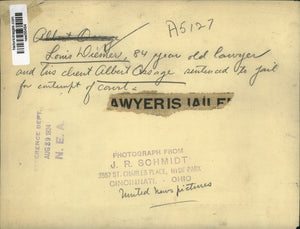 A5127
Louis Diemer, 84 year old lawyer
and his client Albert Osage sentenced to jail
for contempt of court.
LAWYER IS JAILED
REFERENCE DEPT.
AUG 29 1924
N. E. A.
PHOTOGRAPH FROM
J. R. SCHMIDT
3557 ST. CHARLES PLACE, HYDE PARK
CINCINNATI, - OHIO
United News pictures